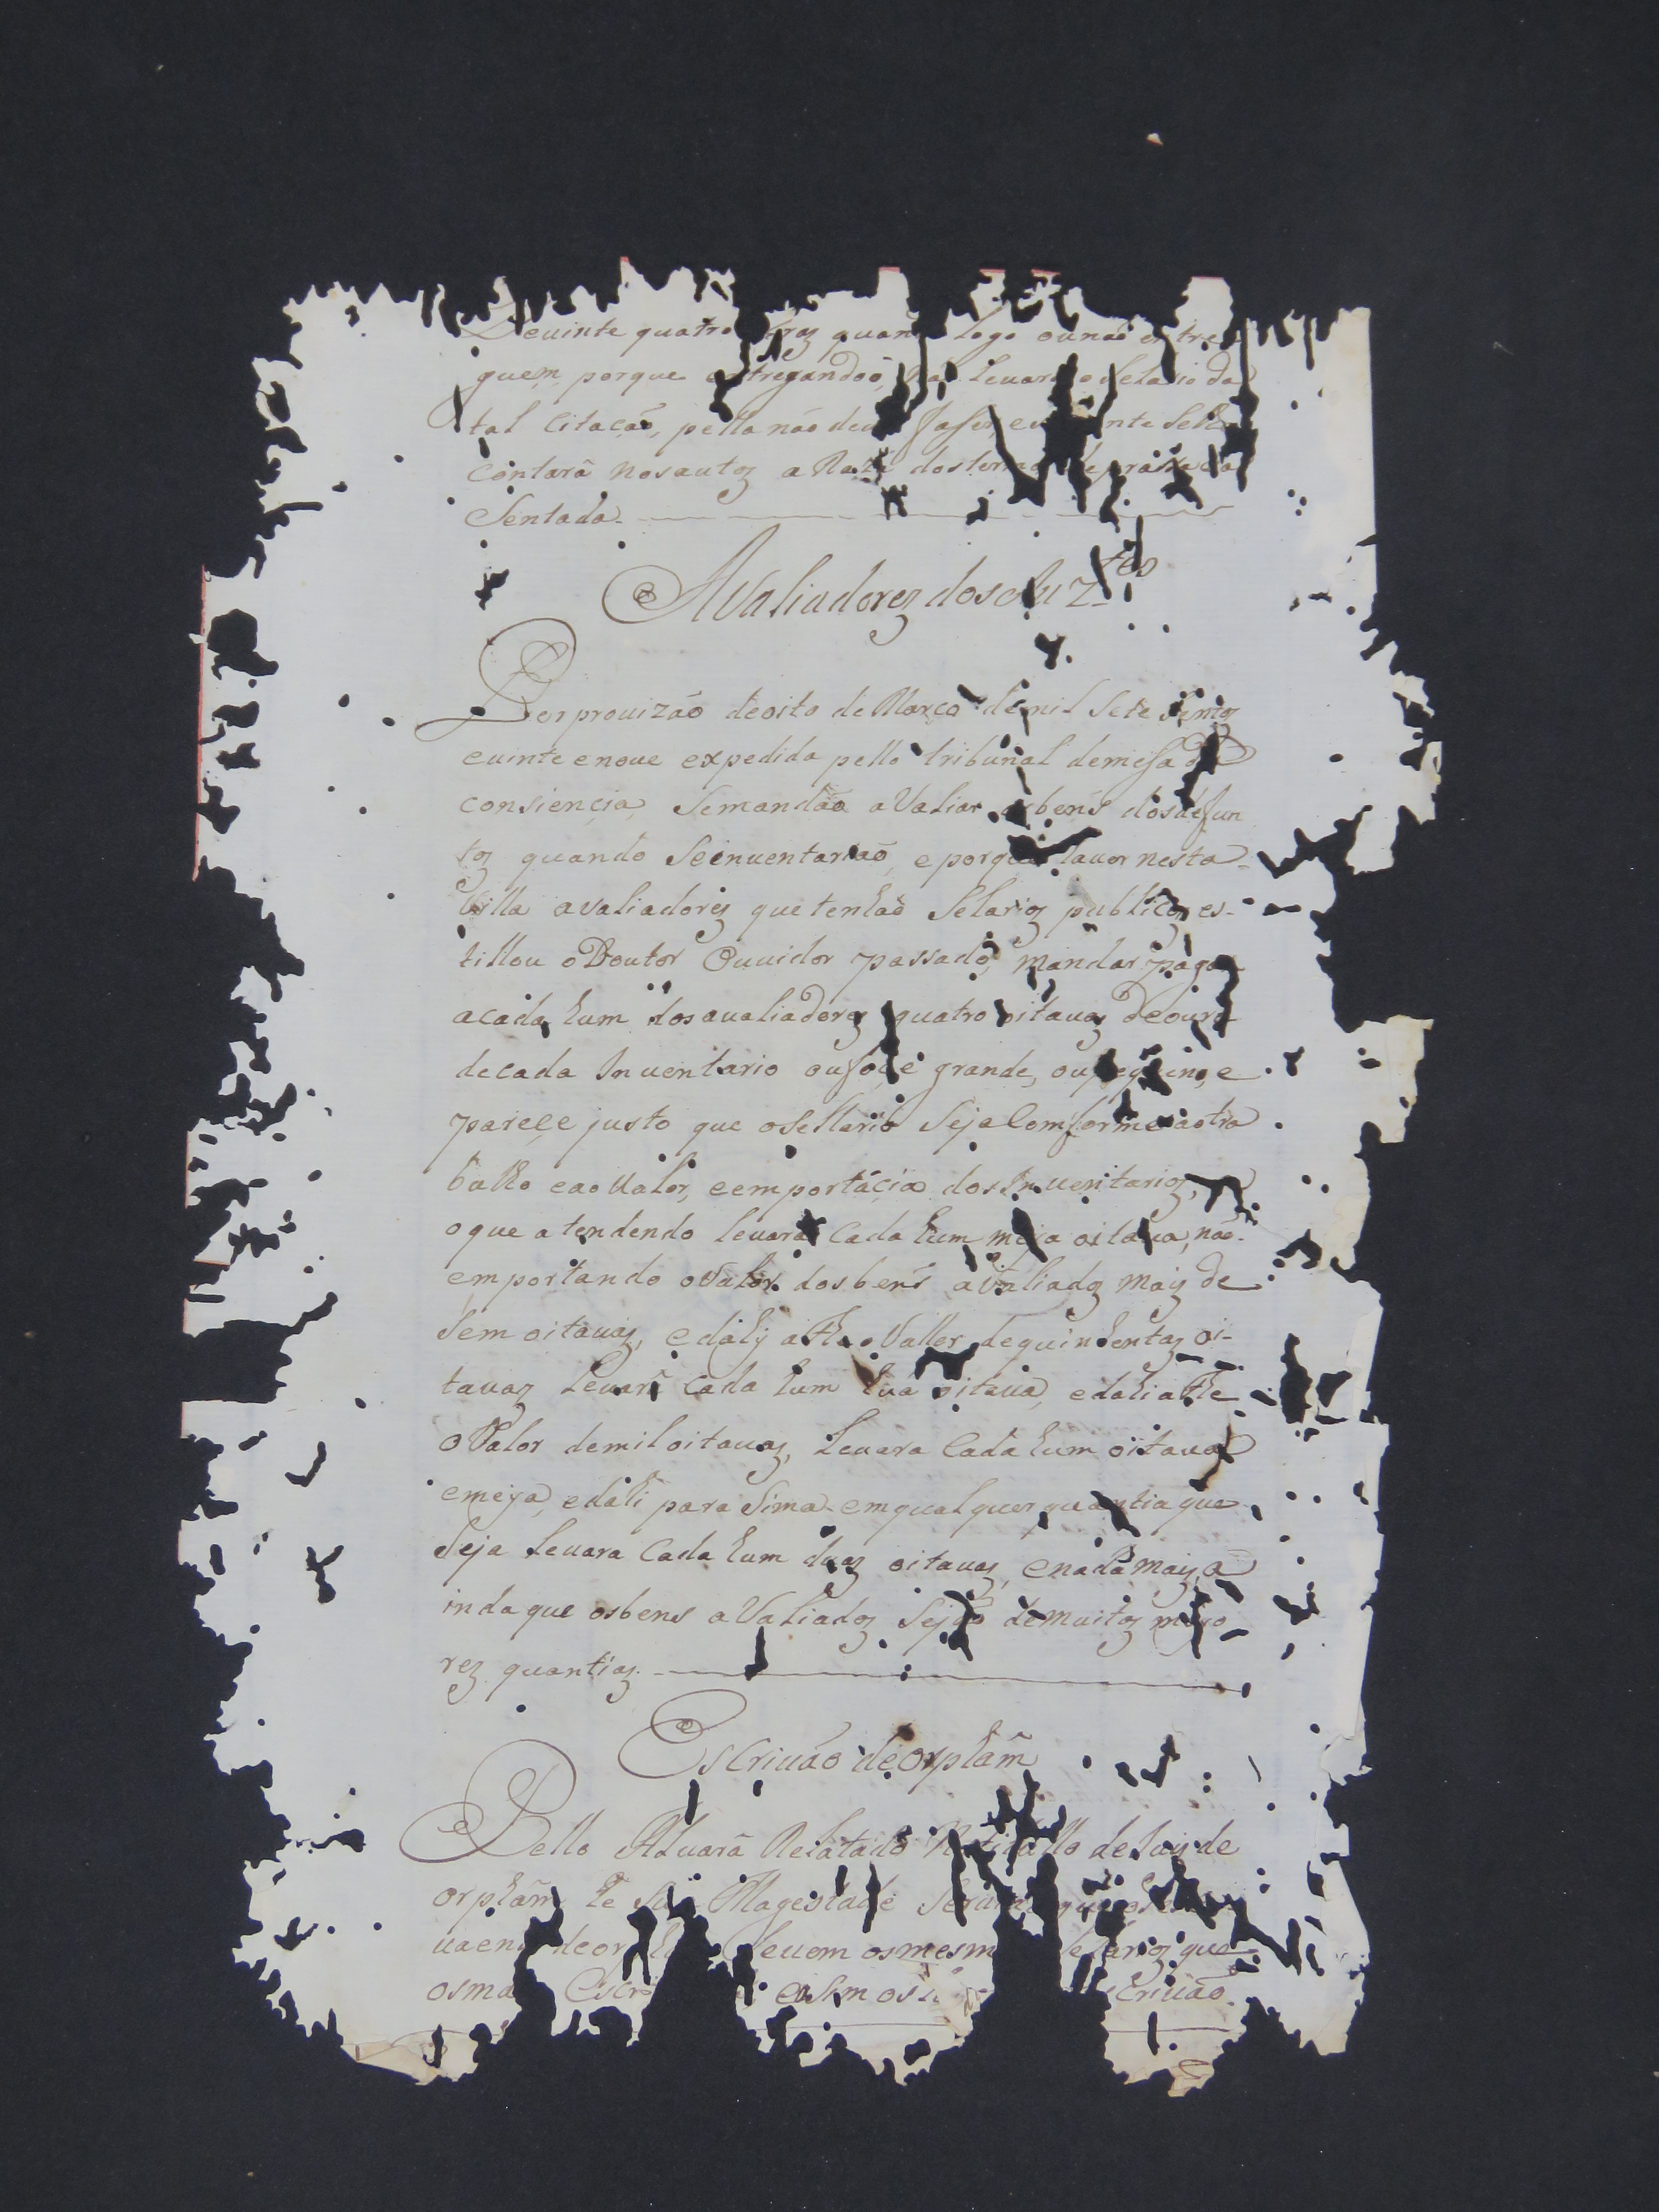 Devinte quatro quan logo ounaõ entre
guem, porque entregandoõ, levar o selario da
tal citacaõ, pella não deve faser, e
contarâ nosautoz a Raza dostermos
Sentada
Avaliadorez dosauz.tes
Porprouizão deoito deMarço demil Sete Sentoz
evinte enove expedida pello tribunal demesa da
consiencia, Semandão aValiar osbens dosdefun
toz quando Seinuentariaõ, eporque nesta
Villa avaliadorez que tenhaõ Selarioz publicoz es-
tillou oDoutor Ouuidor passado, mandar pagar
acada hum dosavaliadorez quatro oitavaz deouro
decada Inuentario oufoçe grande, oupequeno, e
pareçe justo que osellario Seja Comforme aotra
balho eaoValor, eemportáçia dosInuentarioz,
oque atendendo levarâ Cada hum meja oitava, naõ
emportando oValor dosbens aValiadoz maiz de
Sem oitavaz, edahy atheo Vallor dequinhentaz oi-
tavaz Levarâ Cada hum hua oitava, edahi athe
oValor demil oitavaz, Levara Cada hum oitava
emeya, edahi para Sima emqualquer quantia que
Seja Levara Cada hum duaz oitavaz, enada maiz, a
indaque osbens aValiadoz Sejaõ demuitoz mayo
rez quantiaz.
Escriuão deorphãm
Pello Aluarâ Relatado No titullo deJuiz de
orphãm he Sua Magestade Seruido que
uaens deorphãm Levem osmesmos Selarioz que
osmaiz Escri easim os criuão